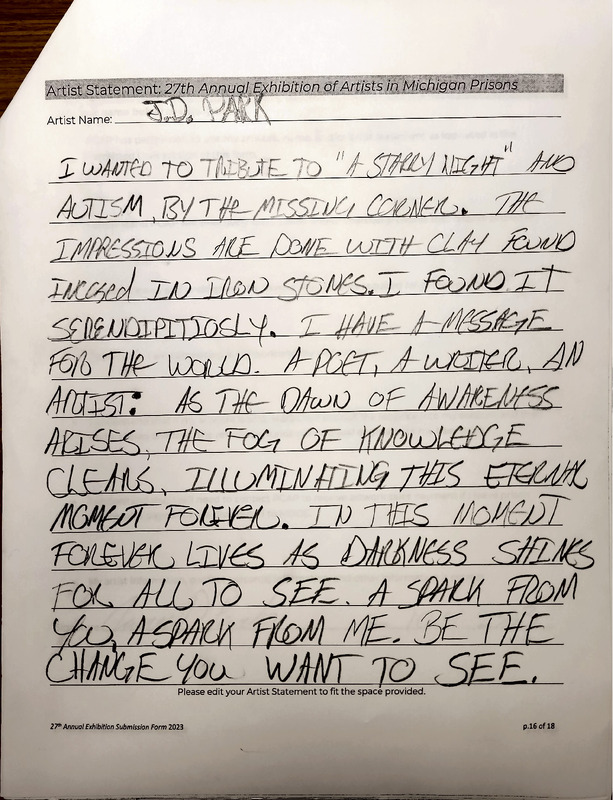 Artist Statement: 27th Annual Exhibition of Artists in Michigan Prisons
Artist Name: J.D. PARK
I WANTED TO TRIBUTE TO "A STARRY NIGHT" AND
AUTISM, BY THE MISSING CORNER. THE
IMPRESSIONS ARE DONE WITH CLAY FOUND
INCASED IN IRON STONES. I FOUND IT
SERENDIPITIOSLY. I HAVE A MESSAGE
FOR THE WORLD. A POET, A WRITER, AN
ARTIST: AS THE DAWN OF AWARENESS
ARISES, THE FOG OF KNOWLEDGE
CLEARS, ILLUMINATING THIS ETERNAL
MOMENT FOREVER. IN THIS MOMENT
FOREVER LIVES AS DARKNESS SHINES
FOR ALL TO SEE. A SPARK FROM
YOU, A SPARK FROM ME. BE THE
CHANGE YOU WANT TO SEE.
Please edit your Artist Statement to fit the space provided.
27th Annual Exhibition Submission Form 2023 p.16 of 18